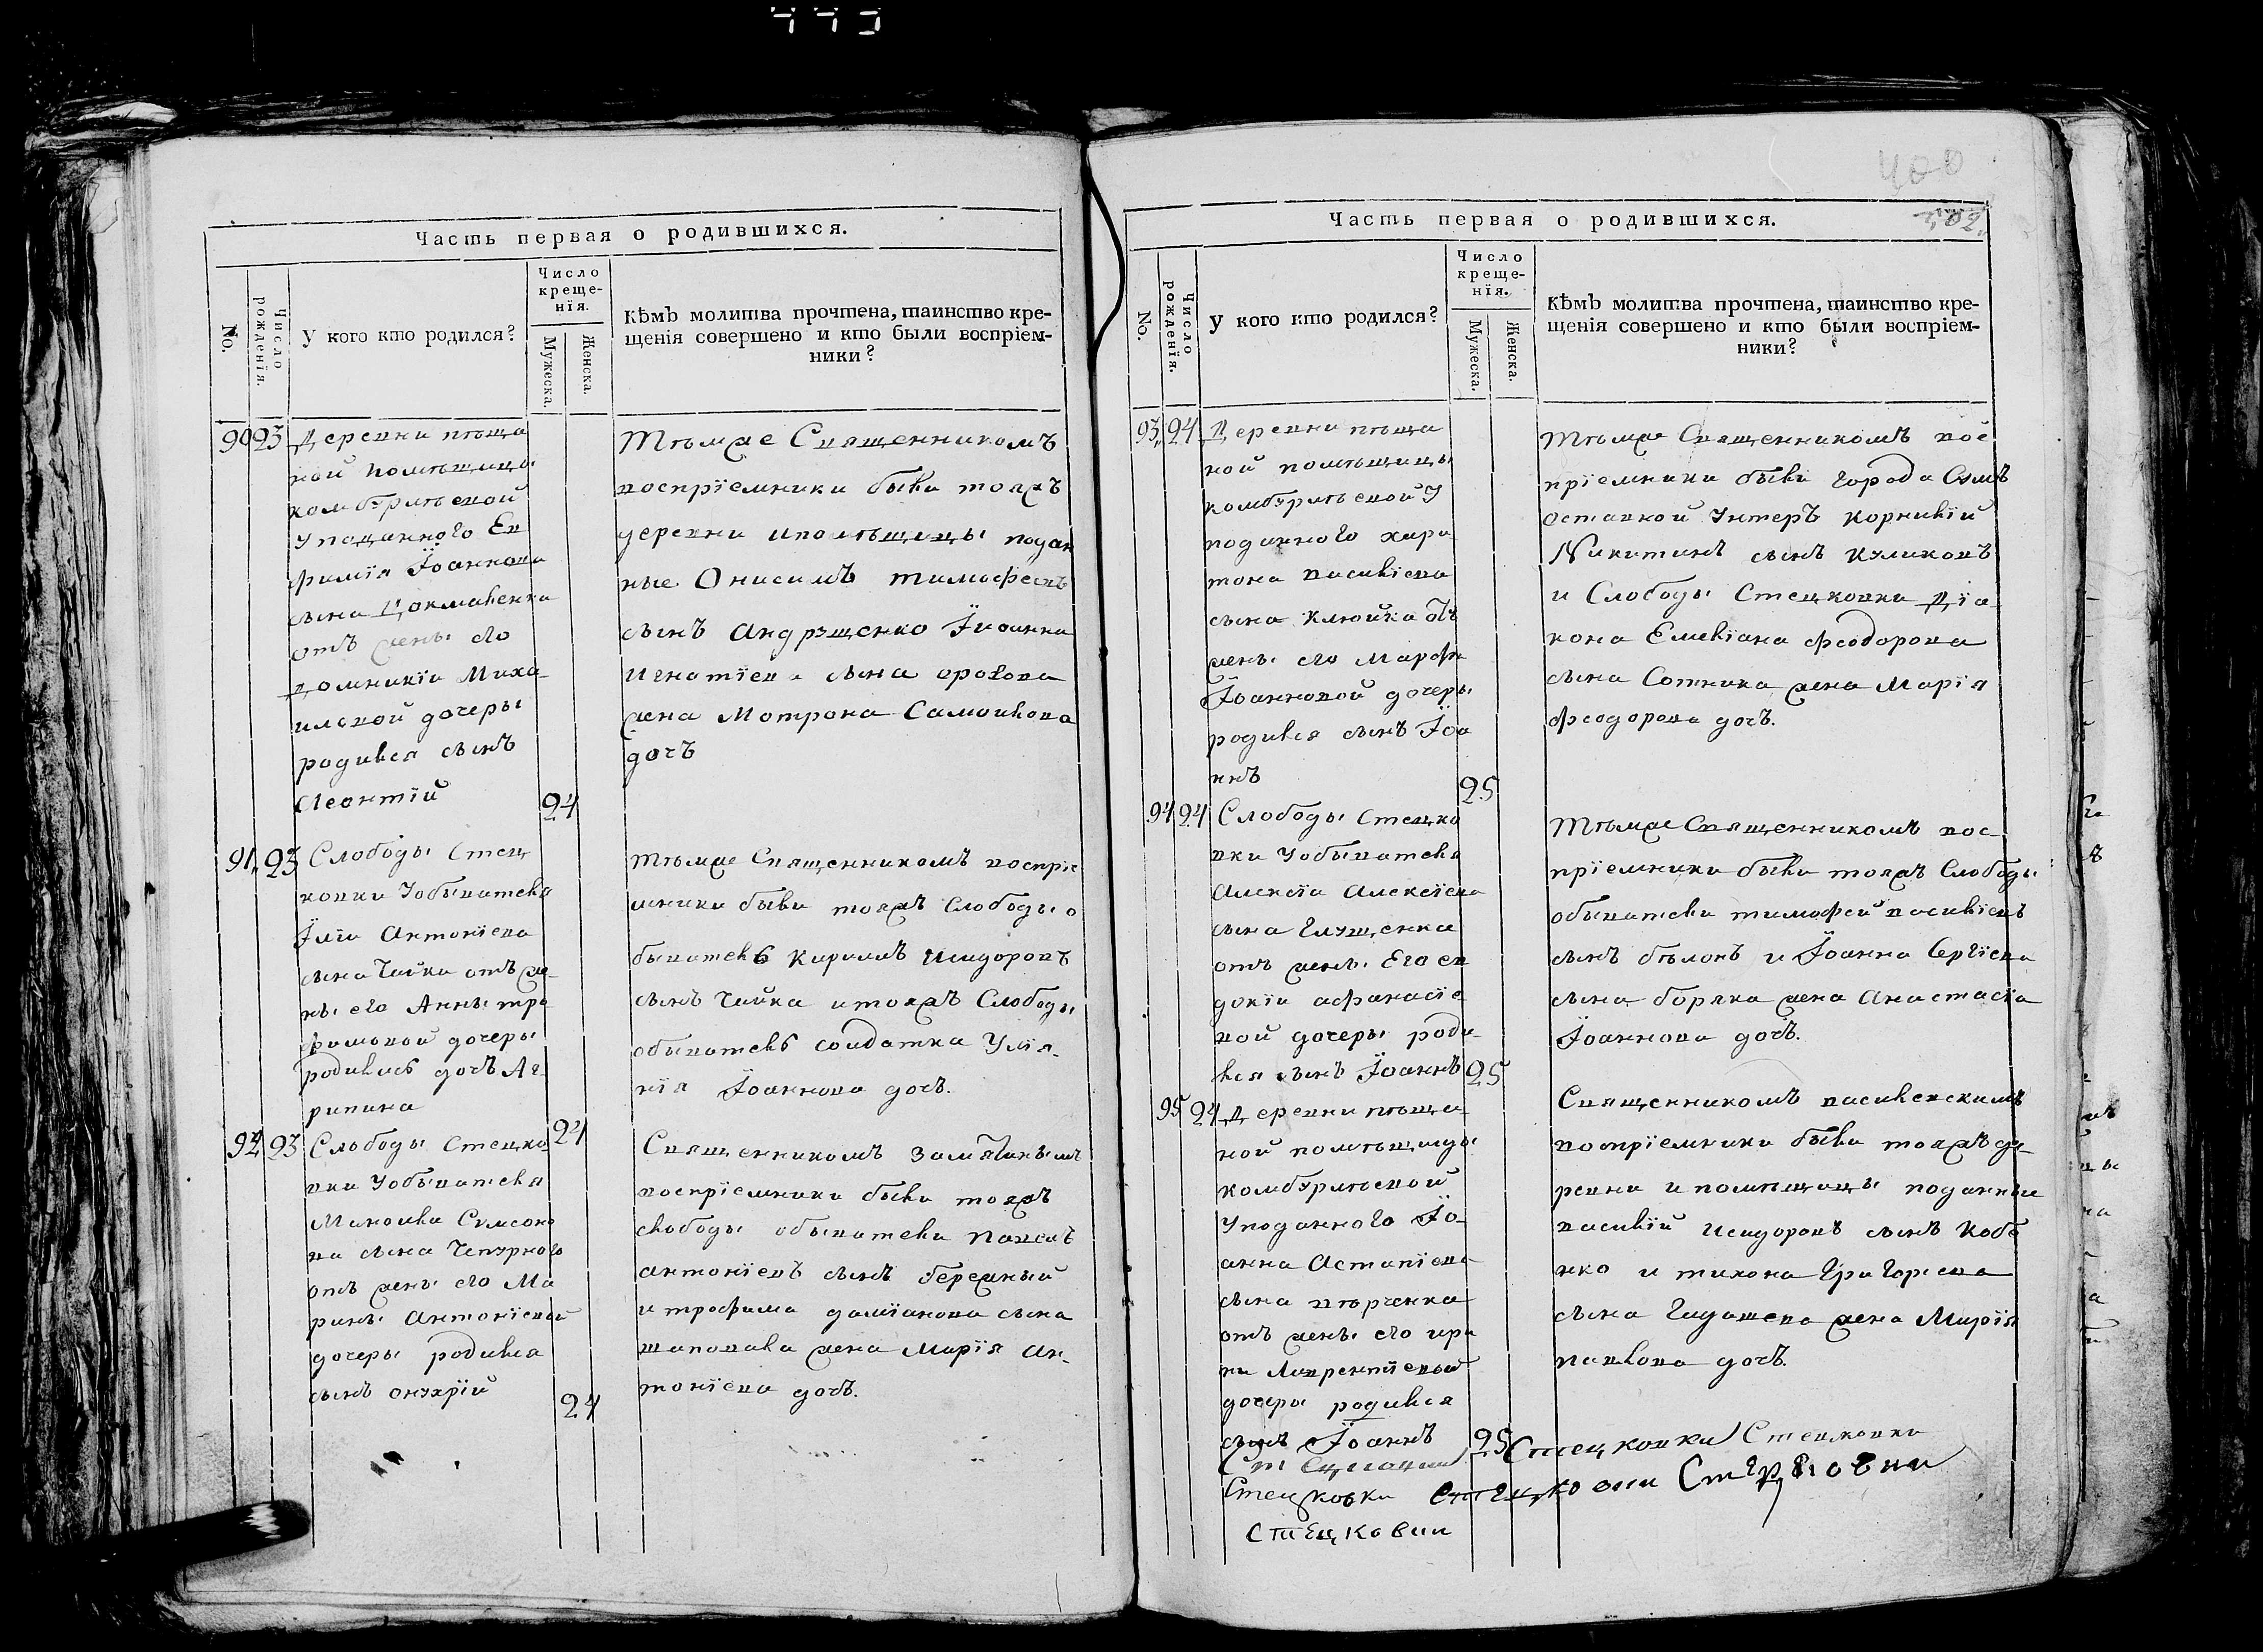 400
Часть первая о родившихся.
No.
Число рожденія.
У кого кто родился?
Число
креще-
нія.
Мужеска.
Женска.
Кѣмъ молитва прочтена, таинство кре-
щенія совершено и кто были воспріем-
ники?
90 23 Деревни пѣща
ной помѣщицы
комбурлѣевой
Уподанного Ев
фимія Іоаннова
сына
отъ жены его
домникіи Миха-
иловой дочеры
родился сынъ
Леонтій 24
Тѣмже Священникомъ
воспріемники были тояжъ
деревни ипомѣщицы подан
ные Онисимъ тимофеевъ
сынъ Андрущенко Іиоанна
Игнатіева сына орохова
жена Мотрона Самоилова
дочъ
91 23 Слободы Стец
ковки Уобывателя
Іліи Антоніева
сына Чайки отъ же-
ны его Анны тро
фимовой дочеры
родилась дочъ Аг-
рипина 24
тѣмже Священникомъ воспріе
мники были тояжъ Слободы о
быватель Кирилъ Исидоровъ
сынъ Чайка итояжъ Слободы
обыватель солдатка Улія-
нія Іоаннова дочъ.
92 23 Слободы Стецко
вки Уобывателя
Мануила Симеоно
ва сына Чепурного
отъ жены его Ма
рины Антоніевой
дочеры родился
сынъ онуфрій 24
Священникомъ Замятинымъ
воспріемники были тояжъ
слободы обыватели Павелъ
антоніевъ сынъ бережный
и трофима даміанова сына
шаповала жена Марія Ан-
тоніева дочъ.
Часть первая о родившихся.
No.
Число рожденія.
У кого кто родился?
Число
креще-
нія.
Мужеска.
Женска.
Кѣмъ молитва прочтена, таинство кре-
щенія совершено и кто были воспріем-
ники?
93 24 Деревни пѣща
ной помѣщицы
комбурлѣевой У
поданного хари
тона василіева
сына Клюйка отъ
жены его Марфы
Іоанновой дочеры
родился сынъ Іоа
ннъ 25
Тѣмже Священникомъ вос
пріемники были города Сумъ
оставной Унтеръ Корнилій
Никитинъ сынъ Куликовъ
и Слободы Стецковки Діа
кона Емиліана феодорова
сына Сотника жена Марія
феодорова дочъ.
94 24 Слободы Стецко
вки Уобывателя
Алексіа Алексіева
сына Глущенка
отъ жены Его ев
докіи афанасіе
вой дочеры роди
лся сынъ Іоаннъ 25
Тѣмже Священникомъ вос-
пріемники были тояжъ Слободы
обыватели тимофей василіевъ
сынъ бѣлонъ и Іоанна Сергіева
сына боряка жена Анастасіа
Іоаннова дочъ.
95 24 Деревни пѣща
ной помѣщицы
комбурлѣевой
Уподанного Іо-
анна Астапіева
сына
отъ жены его ири
ни Лаврентіевой
дочеры родился
сынъ Іоаннъ 25
Священникомъ василевскимъ
воспріемники были тояжъ де-
ревни и помѣщицы поданные
василій Исидоровъ сынъ Кобз
нко и тихона Григориева
сына жена Марія
павлова дочъ.
Стецковки Стецковки
Стецковки Стецковки
Стецковки